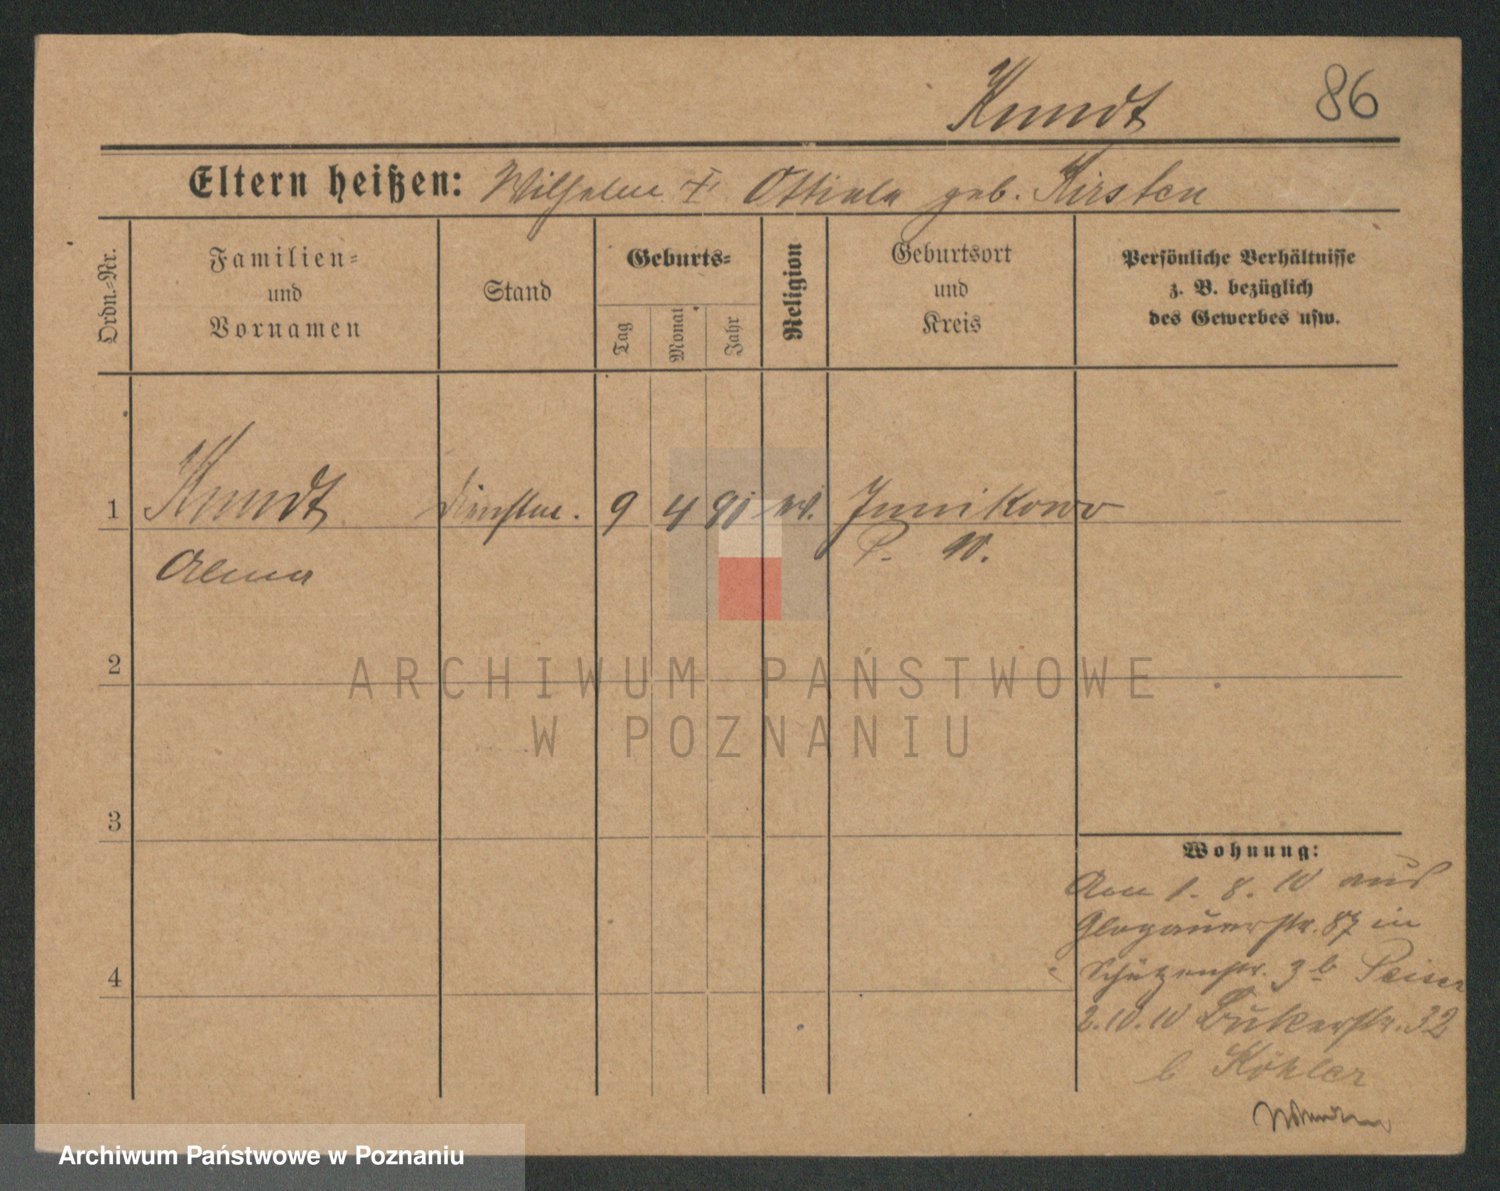 Kundt
86
Eltern heißen: Wilhelm † Ottilie geb. Kirsten
Ordn.-Nr.
Familien-
und
Vornamen
Stand
Geburts-
Tag
Monat
Jahr
Religion
Geburtsort
und
Kreis
Persönliche Verhältnisse
z. B. bezüglich
des Gewerbes usw.
1 Kundt 9 4 91 ev. Junikowo
Alma P. W.
2
ARCHIWUM PAŃSTWOWE
W POZNANIU
3
Wohnung:
Am 1. 8. 10 aus
Glogauerstr. 87 in
4
Schützenstr. 3 b
2.10.10 Bukerstr. 32
b Köhler
Archiwum Państwowe w Poznaniu